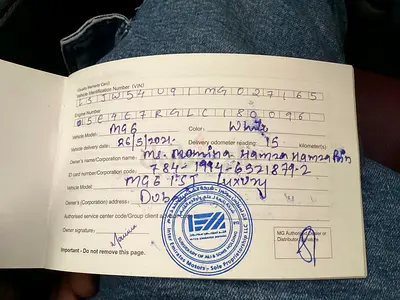 Quality Warranty Card
Vehicle Identification Number (VIN)
LSJW54U91MG027465
Engine Number
15E4E7RGLC180096
Vehicle Model: MG6 Color: White
Vehicle delivery date: 26/5/2021. Delivery odometer reading 15 kilometer(s)
Owner's name/Corporation name: Ms. Momina Hamza Hamza
ID card number/Corporation code: 784-1994-6521879-2
Vehicle Model MG6 1.5T Luxury
Owner's (Corporation) address: Dub
Authorised service center code/Group client
Owner signature:
Important - Do not remove this page.
Inter Emirates Motors - Sole Proprietorship LLC
MG Authorised Dealer or
Distributor